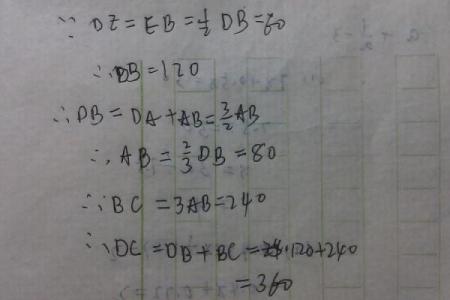 ∵ DE = EB = 1/2 DB = 60
∴ DB = 120
∴ DB = DA + AB = 3/2 AB
∴ AB = 2/3 DB = 80
∴ BC = 3AB = 240
∴ DC = DB + BC = 120 + 240
= 360